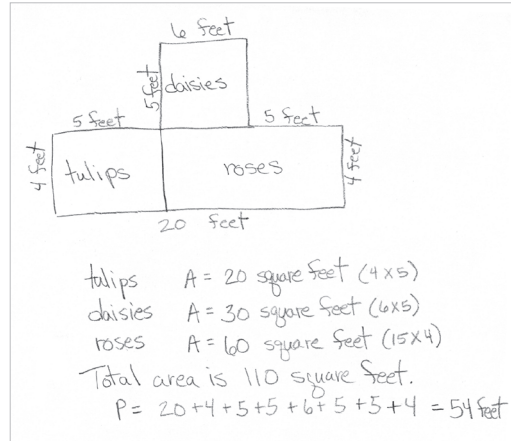 6 feet
5 feet
daisies
5 feet
5 feet
4 feet
tulips
roses
4 feet
20 feet
tulips A = 20 square feet (4x5)
daisies A = 30 square feet (6x5)
roses A = 60 square feet (15x4)
Total area is 110 square feet.
P = 20+4+5+5+6+5+5+4 = 54 feet